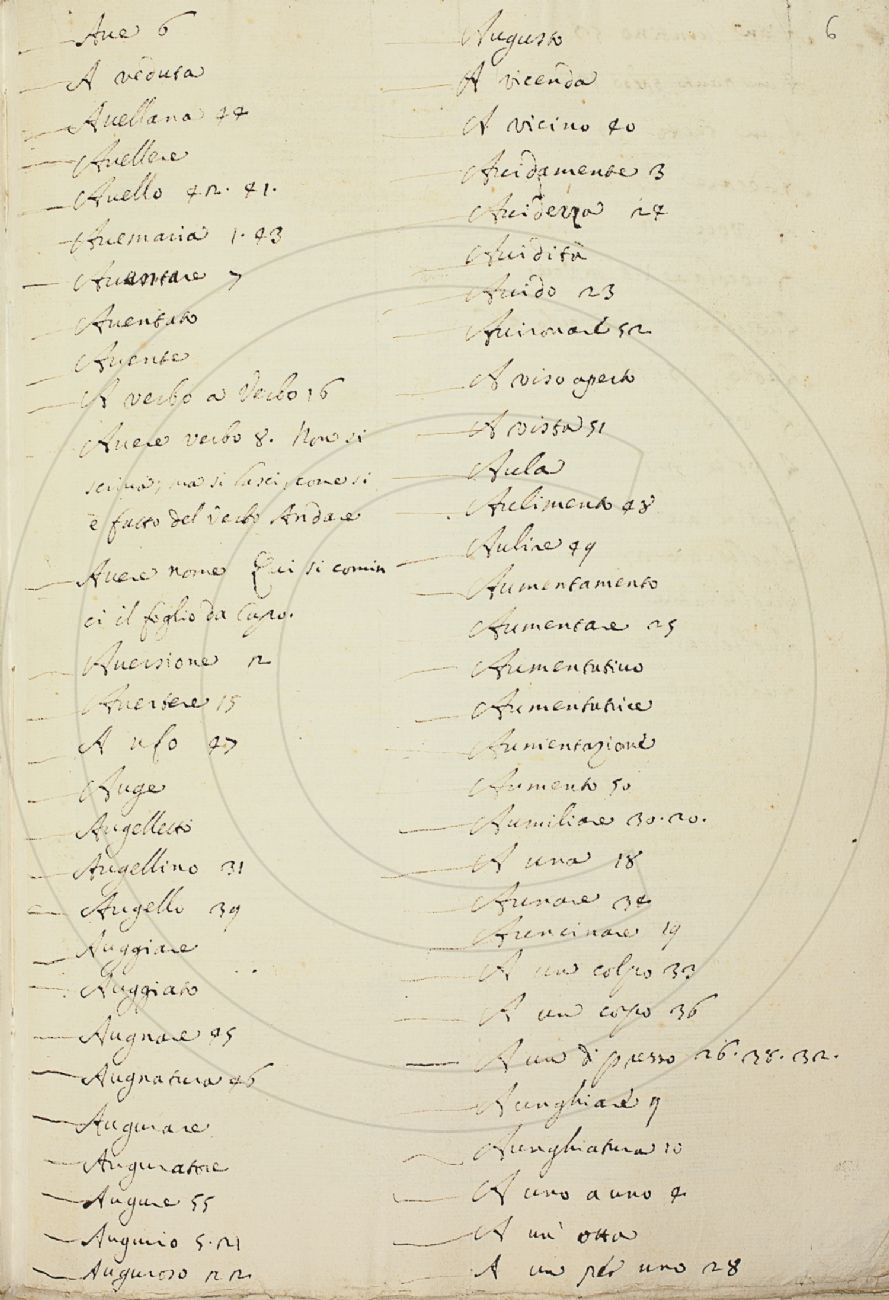 6
Aue 6
A veduta
Auellana 44
Auellere
Auello 42. 41.
Auemaria 1. 43
Auentare 7
Auentato
Auente
A verbo a verbo 16
Auere verbo 8. Non si
ma si lasci, come si
è fatto del verbo Andare
Auere nome Qui si comin
ci il foglio da capo.
Auersione 12
Auertere 15
A ufo 47
Auge
Augelletto
Augellino 31
Augello 39
Auggiare
Auggiato
Augnare 45
Augnatura 46
Augurare
Auguratore
Augure 55
Augurio 5. 21
Auguroso 22
Augusto
A vicenda
A vicino 40
Auidamente 3
Auidezza 24
Auidità
Auido 23
Auironare 52
A viso aperto
A vista 51
Aula
Aulimento 48
Aulire 49
Aumentamento
Aumentare 25
Aumentatiuo
Aumentatrice
Aumentazione
Aumento 50
Aumiliare 30. 20.
A una 18
Aunare 34
Auncinare 19
A un colpo 33
A un corpo 36
A un di presso 26. 38. 32.
Aunghiare 9
Aunghiatura 10
A uno a uno 4
A un' otta
A un per uno 28